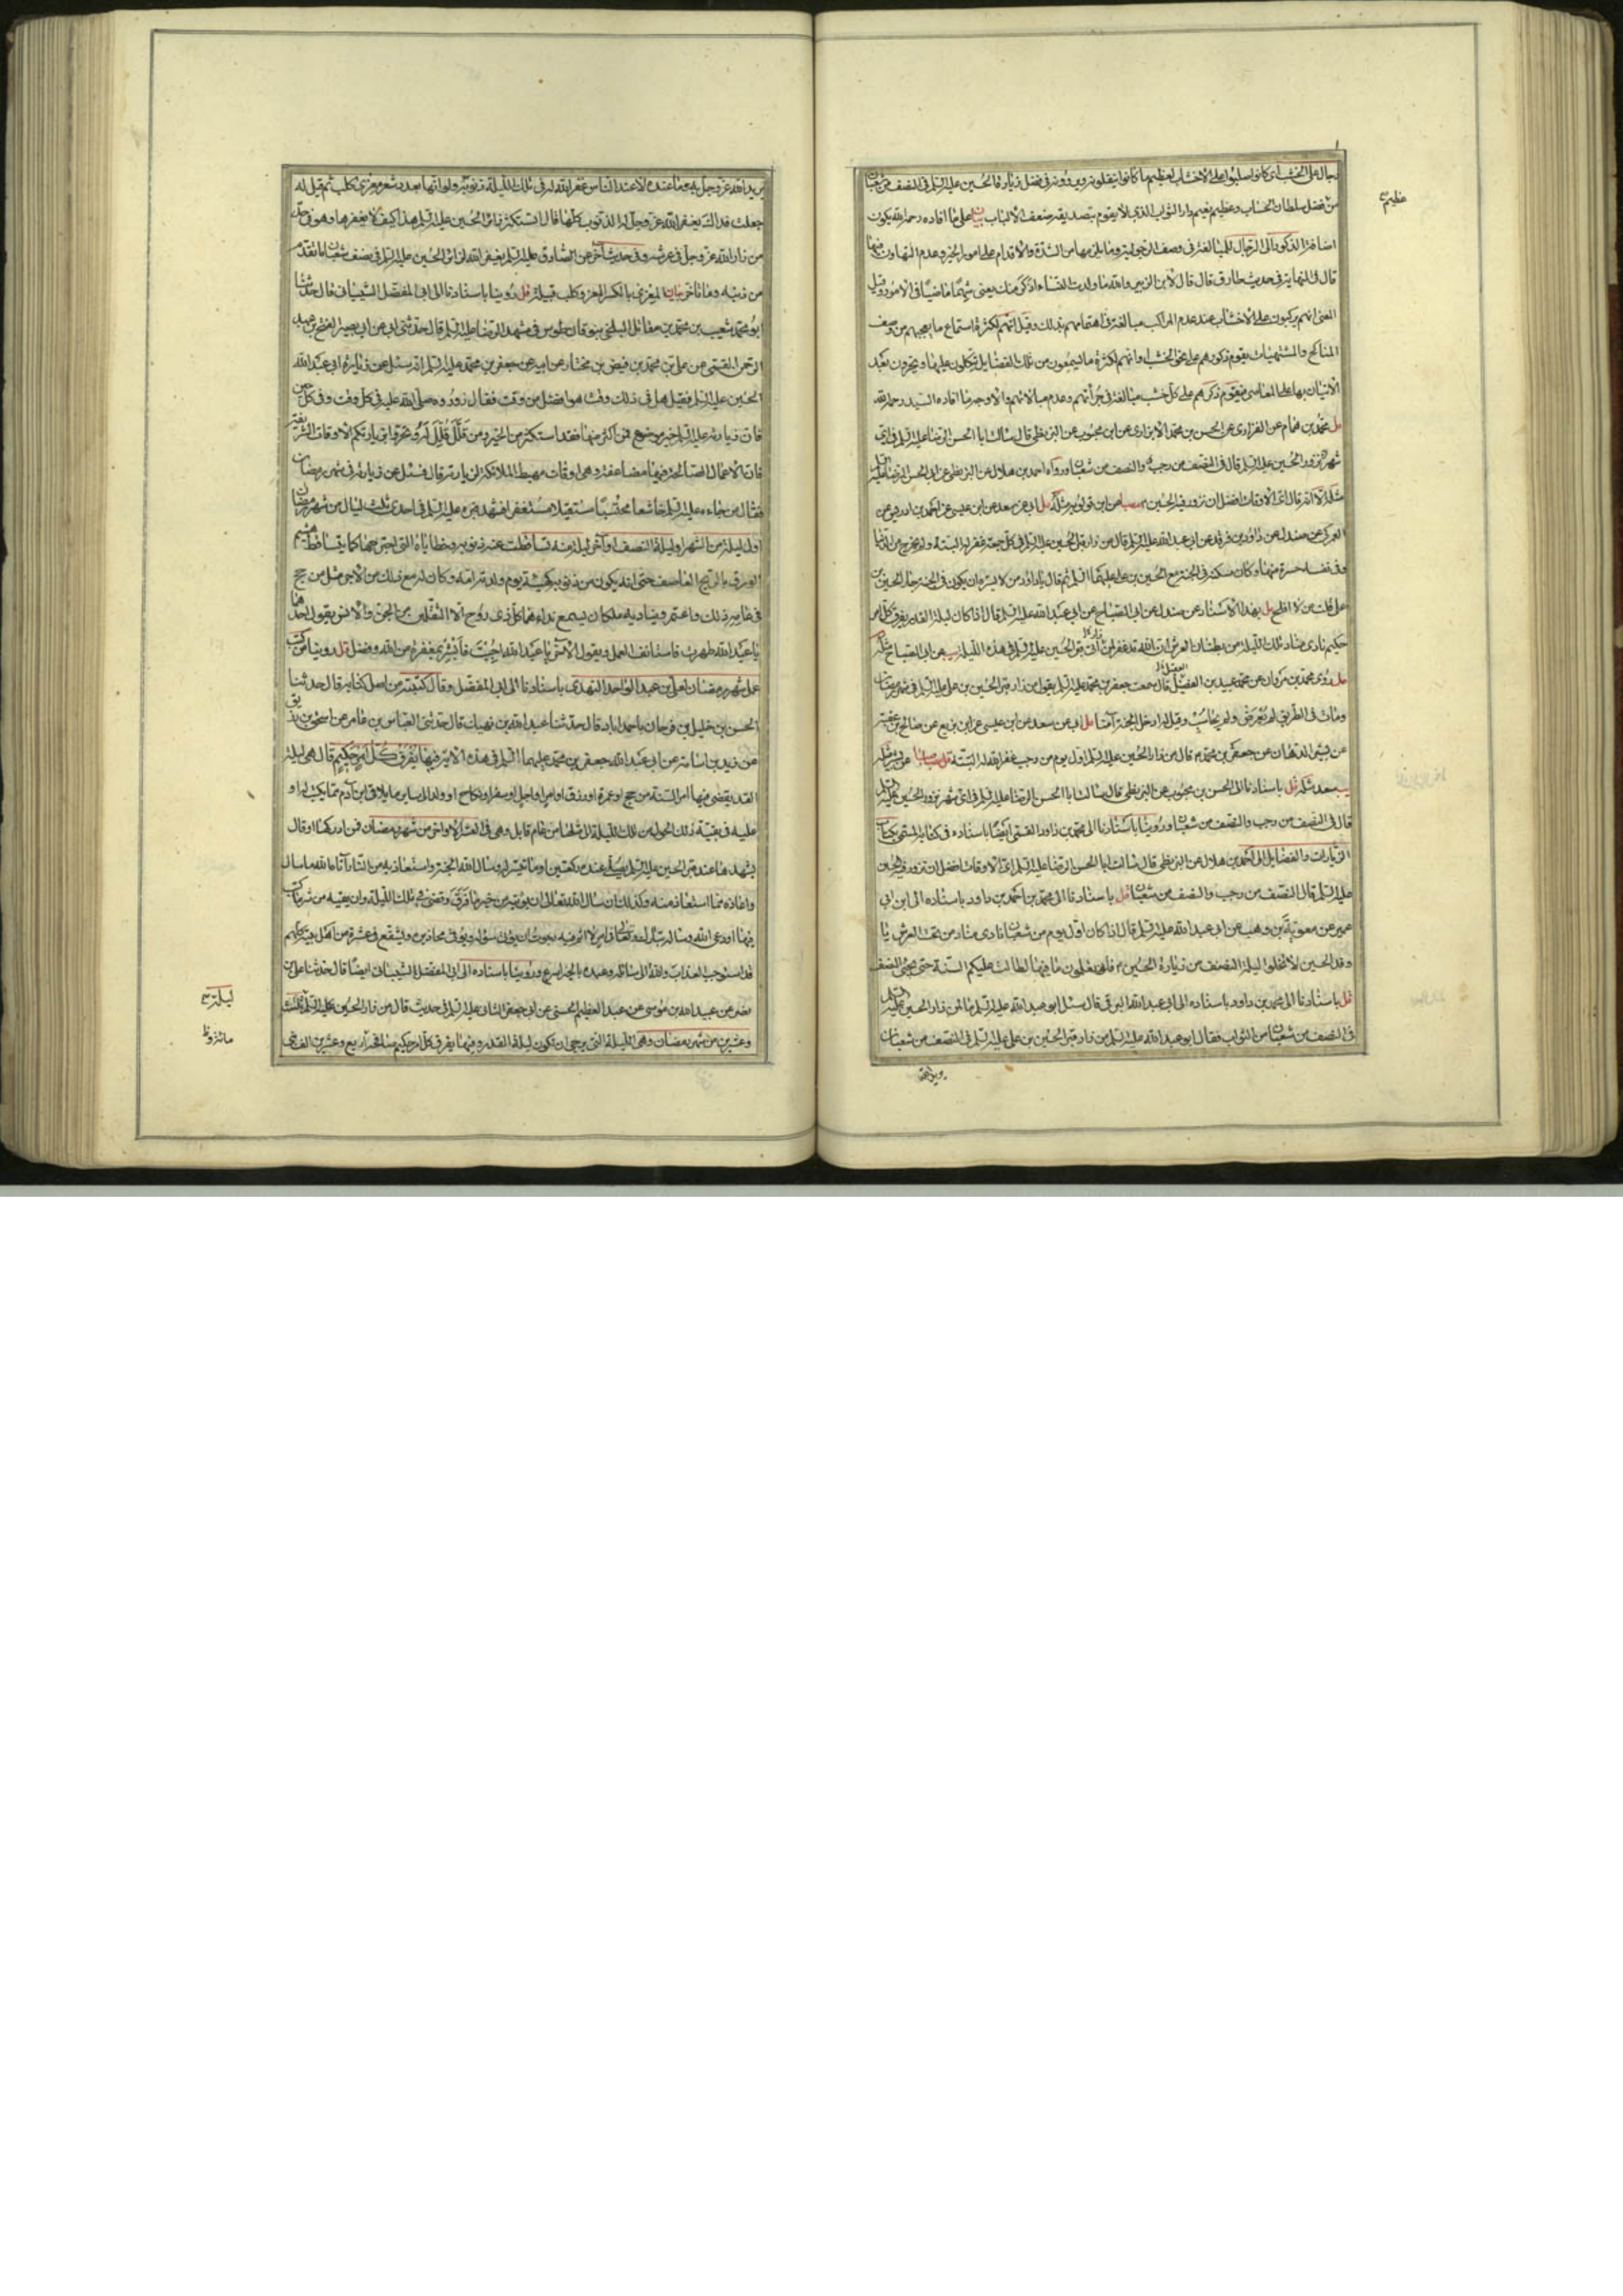 رجال على الخشب اى كانوا صلبوا على الاخشاب لعظيم ما كانوا ينقلونه ويروونه فى فضل زيارة الحسين عليه السلم فى النصف من شعبان
عظيم
من فضل سلطان الحساب وعظيم نعيم دار الثواب الذى لا يقوم بتصديقه ضعف الالباب بيان على ما افاده رحمه الله يكون
اضافة الذكور الى الرجال للمبالغة فى وصف الرجولية وما يلزمها من الشدة والاقدام على امور الخير وعدم التهاون فيها
قال فى النهاية فى حديث طارق قال لابن الزبير والله ما ولدت النساء اذكر منك يعنى شهما ماضيا فى الامور وقيل
المعنى انهم يركبون على الاخشاب عند عدم المراكب مبالغة فى اهتمامهم بذلك وقيل انهم لكثرة استماع ما يعجبهم من وصف
المناكح والمشتهيات يقوم ذكورهم على نحو الخشب او انهم لكثرة ما يسمعون من تلك الفضايل يتكلون عليها ويجترون بعد
الاتيان بها على المعاصى فيقوم ذكرهم على كل خشب مبالغة فى جرأتهم وعدم مبالاتهم والاوجه ما افاده السيد رحمه الله
مل محمد بن همام عن الفزارى عن الحسن بن محمد الابزارى عن ابن محبوب عن البزنطى قال سالت ابا الحسن الرضا عليه السلم فى اى
شهر نزور الحسين عليه السلم قال فى النصف من رجب والنصف من شعبان ورواه احمد بن هلال عن البزنطى عن ابى الحسن الرضا عليه السلم
مثله الا انه قال اى الاوقات افضل ان نزور فيه الحسين مصبا عن ابن قولويه مثله مل ابى عن سعد عن ابن عيسى عن احمد بن ادريس عن
العمركى عن صندل عن داود بن فرقد عن ابى عبد الله عليه السلم قال من زار قبر الحسين عليه السلم فى كل جمعة غفر له البتة ولم يخرج من الدنيا
وفى نفسه حسرة منها وكان مسكنه فى الجنة مع الحسين بن على عليهما السلم ثم قال يا داود من لا يسره ان يكون فى الجنة جار الحسين بن
على قلت من لا افلح مل بهذا الاسناد عن صندل عن ابى الصباح عن ابى عبد الله عليه السلم قال اذا كان ليلة القدر يفرق كل امر
حكيم نادى مناد تلك الليلة من بطنان العرش ان الله قد غفر لمن اتى قبر الحسين عليه السلم فى هذه الليلة يب عن ابى الصباح مثله
مل روى محمد بن مروان عن محمد عبيد بن الفضل قال سمعت جعفر بن محمد عليه السلم يقول من زار قبر الحسين بن على عليه السلم فى شهر رمضان
ومات فى الطريق لم يعرض ولم يحاسب وقيل له ادخل الجنة آمنا مل ابى عن سعد عن ابن عيسى عن ابن بزيع عن صالح بن عقبة
عن بشير الدهان عن جعفر بن محمد قال من زار الحسين عليه السلم اول يوم من رجب غفر الله له البتة
يب سعد مثله قل باسنادنا الى الحسن بن محبوب عن البزنطى قال سالت ابا الحسن الرضا عليه السلم فى اى شهر نزور الحسين عليه السلم
قال فى النصف من رجب والنصف من شعبان وروينا باسنادنا الى محمد بن داود القمى ايضا باسناده فى كتابه المسمى بكتاب
الزيارات والفضايل الى احمد بن هلال عن البزنطى قال سالت ابا الحسن الرضا عليه السلم اى الاوقات افضل ان نزور فيه الحسين
عليه السلم قال النصف من رجب والنصف من شعبان قل باسنادنا الى محمد بن احمد بن داود باسناده الى ابن ابى
عمير عن معوية بن وهب عن ابى عبد الله عليه السلم قال اذا كان اول يوم من شعبان نادى مناد من تحت العرش يا
وفد الحسين لا تخلوا ليلة النصف من زيارة الحسين فلو تعلمون ما فيها لطالت عليكم السنة حتى يجئ النصف
قل باسنادنا الى محمد بن داود باسناده الى ابى عبد الله البرقى قال سئل ابو عبد الله عليه السلم ما لمن زار الحسين عليه السلم
فى النصف من شعبان من الثواب فقال ابو عبد الله عليه السلم من زار قبر الحسين بن على عليه السلم فى النصف من شعبان
يريد الله
يريد الله عز وجل به وما عنده لا عند الناس غفر الله له فى تلك الليلة ذنوبه ولو انها بعدد شعر معزى كلب ثم قيل له
جعلت فداك يغفر الله عز وجل له الذنوب كلها قال اتستكثر لزائر الحسين عليه السلم هذا كيف لا يغفرها وهو فى حد
من زار الله عز وجل فى عرشه وفى حديث آخر عن الصادق عليه السلم يغفر الله لزائر الحسين عليه السلم فى نصف شعبان ما تقدم
من ذنبه وما تاخر بيان المعزى بالكسر المعز وكلب قبيلة قل روينا باسنادنا الى ابى المفضل الشيبانى قال حدثنا
ابو محمد شعيب بن محمد بن مقاتل البلخى بنوقان طوس فى مشهد الرضا عليه السلم قال حدثنى ابى عن ابى بصير الفتح بن عبد
الرحمن القمى عن على بن محمد بن فيض بن مختار عن ابيه عن جعفر بن محمد عليه السلم انه سئل عن زيارة ابى عبد الله
الحسين عليه السلم فقيل هل فى ذلك وقت هو افضل من وقت فقال زوروه صلى الله عليه فى كل وقت وفى كل حين
فان زيارته عليه السلم خير موضوع فمن اكثر منها فقد استكثر من الخير ومن قلل قلل له وتحروا بزيارتكم الاوقات الشريفة
فان الاعمال الصالحة فيها مضاعفة وهى اوقات مهبط الملائكة لزيارته قال فسئل عن زيارته فى شهر رمضان
فقال من جاءه عليه السلم خاشعا محتسبا مستقيلا مستغفرا فشهد قبره عليه السلم فى احدى ثلث ليال من شهر رمضان
اول ليلة من الشهر او ليلة النصف او آخر ليلة منه تساقطت عنه ذنوبه وخطاياه التى اجترحها كما يتساقط هشيم
الورق بالريح العاصف حتى انه يكون من ذنوبه كهيئة يوم ولدته امه وكان له مع ذلك من الاجر مثل من حج
فى عامه ذلك واعتمر ويناديه ملكان يسمع نداءهما كل ذى روح الا الثقلين من الجن والانس يقول احدهما
يا عبد الله طهرت فاستانف العمل ويقول الآخر يا عبد الله احسنت فابشر بمغفرة من الله وفضل قل روينا من كتاب
عمل شهر رمضان لعلى بن عبد الواحد النهدى باسنادنا الى ابى المفضل وقال كتبته من اصل كتابه قال حدثنا
الحسن بن خليل بن فرحان باحمد اباد قال حدثنا عبد الله بن نهيك قال حدثنى العباس بن عامر عن اسحق بن زريق
عن زيد بن اسامة عن ابى عبد الله جعفر بن محمد عليهما السلم فى هذه الآية فيها يفرق كل امر حكيم قال هى ليلة
القدر يقضى فيها امر السنة من حج او عمرة او رزق او امر او اجل او سفر او نكاح او ولد الى ساير ما يلاقى ابن آدم مما يكتب له او
عليه فى بقية ذلك الحول من تلك الليلة الى مثلها من عام قابل وهى فى العشر الاواخر من شهر رمضان فمن ادركها او قال
يشهدها عند قبر الحسين عليه السلم يصلى عنده ركعتين او ما تيسر له وسال الله الجنة واستعاذ به من النار آتاه الله ما سال
واعاذه مما استعاذ منه وكذلك ان سال الله تعالى ان يؤتيه من خير ما فرق وقضى فى تلك الليلة وان يقيه من شر ما كتب
فيها او دعى الله وساله تبارك وتعالى فى امر لا اثم فيه رجوت ان يؤتى سؤله ويوقى محاذيره ويشفع فى عشرة من اهل بيته كلهم
قد استوجب العذاب والله الى سائله وعبده بالخير اسرع وروينا باسناده الى ابى المفضل الشيبانى ايضا قال حدثنا على بن
نصر عن عبيد الله بن موسى عن عبد العظيم الحسنى عن ابى جعفر الثانى عليه السلم فى حديث قال من زار الحسين عليه السلم ثلث
ليلة
وعشرين من شهر رمضان وهى الليلة التى يرجى ان تكون ليلة القدر وفيها يفرق كل امر حكيم صافحه اربع وعشرين الف